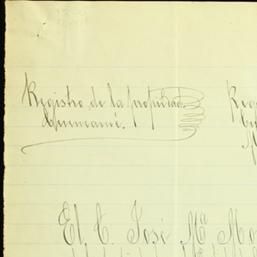 Registro de la propiedad
Cuencamé.
El C. José Mª Mo